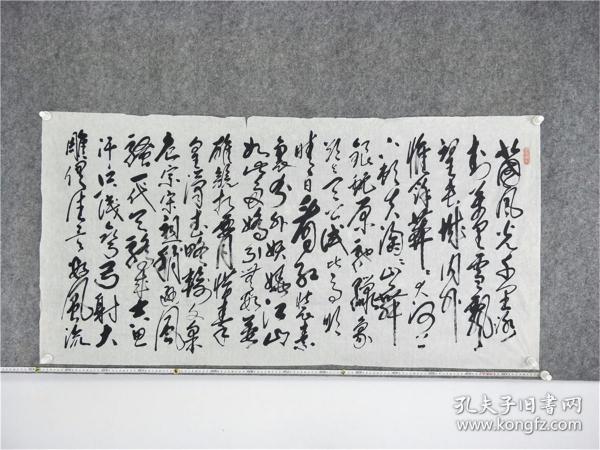 国风光千里冰
封万里雪飘
望长城内外
惟馀莽々大河上
下顿失滔々山舞
银蛇原驰蜡象
欲与天公试比高须
晴日看红装素
裹分外妖娆江山
如此多娇引无数英
雄竞折腰惜秦
皇汉武略输文采
唐宗宋祖稍逊风
骚一代天骄成吉思
汗只识弯弓射大
雕俱往矣数风流
孔夫子旧书网
www.kongfz.com